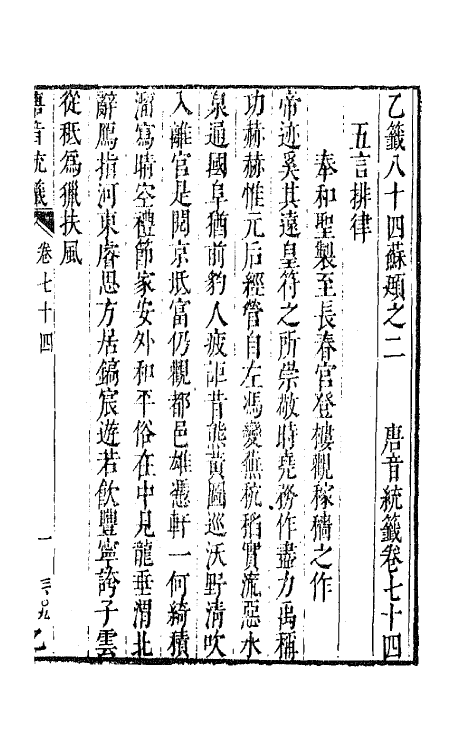 乙籤八十四蘇頲之二　唐音統籤卷七十四
五言排律
奉和聖製至長春宮登樓觀稼穡之作
帝迹奚其遠皇符之所崇敬時堯務作盡力禹稱
功赫赫惟元后經營自左馮變蕪秔稻實流惡水
泉通國阜猶前豹人疲詎昔熊黄圖巡沃野清吹
入離宮是閱京坻富仍觀都邑雄憑軒一何綺積
溜寫晴空禮節家安外和平俗在中見龍垂渭北
辭鴈指河東睿思方居鎬宸遊若飲豐寧誇子雲
從秪爲獵扶風
唐音統籤
卷七十四
一
乙